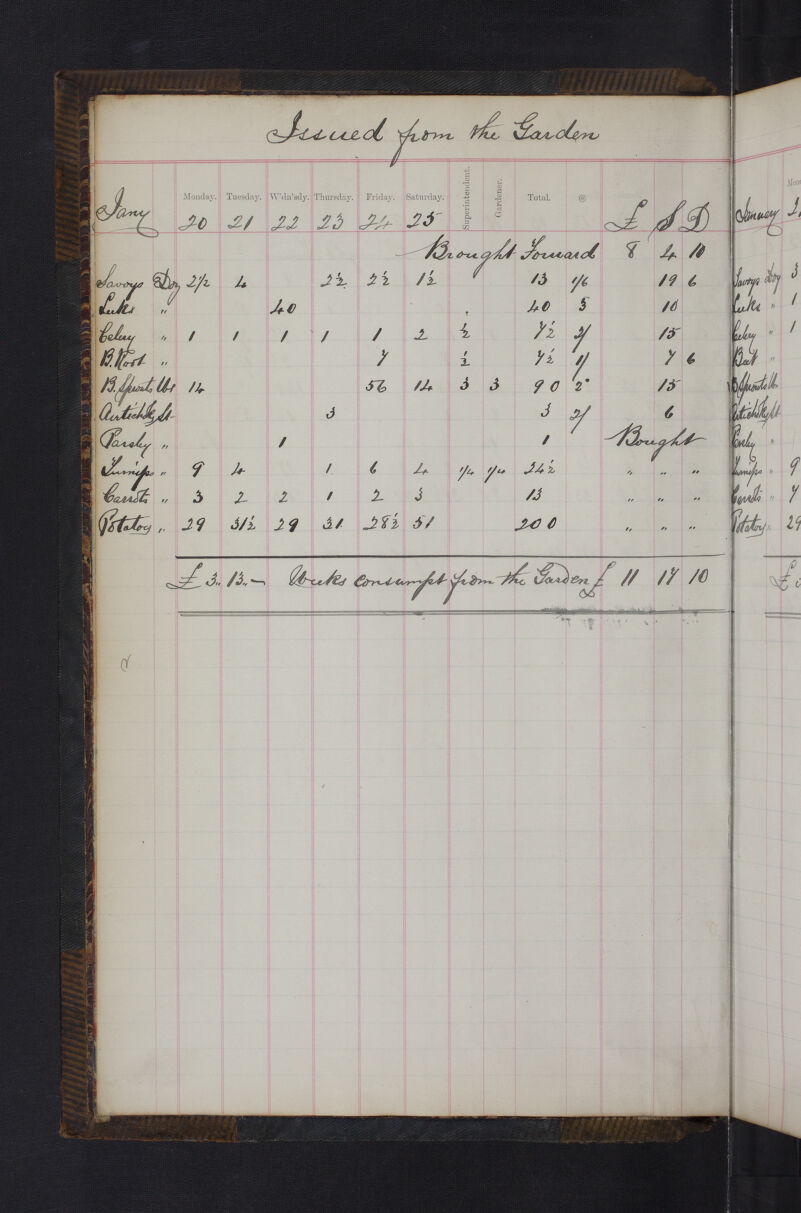 Issued from the Garden
Jany Monday. Tuesday. W'dn'sdy. Thursday. Friday. Saturday. Superintendent. Gardener. Total. @
20 21 22 23 24 25 £ S D
Brought Forward 8 4 10
Savoys Doz 2½ 4 2½ 2½ 1½ 13 1/6 19 6
Leeks " 40 40 3 10
Celery " 1 1 1 1 1 2 ½ 7½ 2/ 15
B. Root " 7 ½ 7½ 1/ 7 6
B. Sprouts lbs 14 56 14 3 3 90 2" 15
3 3 2/ 6
Parsley " 1 1 Bought
Turnips " 9 4 1 6 4 1/4 1/4 24½ " " "
Carrots " 3 2 2 1 2 3 13 " " "
Potatoes " 29 31½ 29 31 28½ 51 200 " " "
£ 3 .. 13 .. – Weeks consumpt from the Garden £ 11 17 10
January
Savoys Doz 3
Leeks " 1
Celery " 1
Beet "
B Sprouts lbs
Parsley "
Turnips " 9
Carrots " 7
Potatoes 29
£